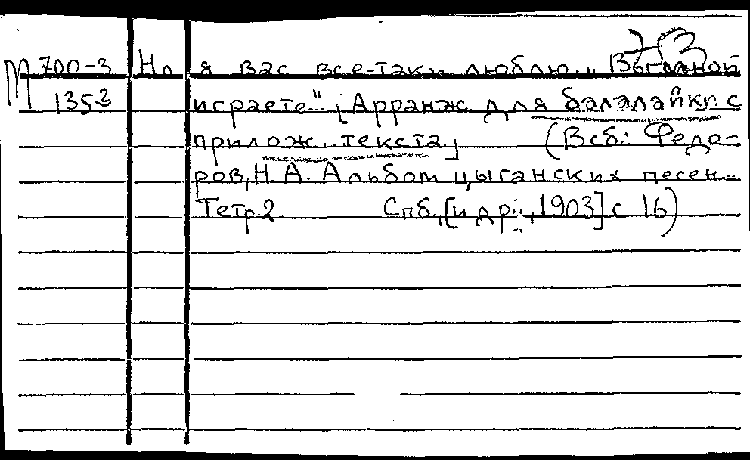 М 700-3 Но я вас все-таки люблю.. "Вы мной
135-3 играете" [Арранж. для балалайки с
прилож. текста] (В сб.: Федо-
ров, Н. А. Альбом цыганских песен..
Тетр 2. Спб, [и др.., 1903] с 16)